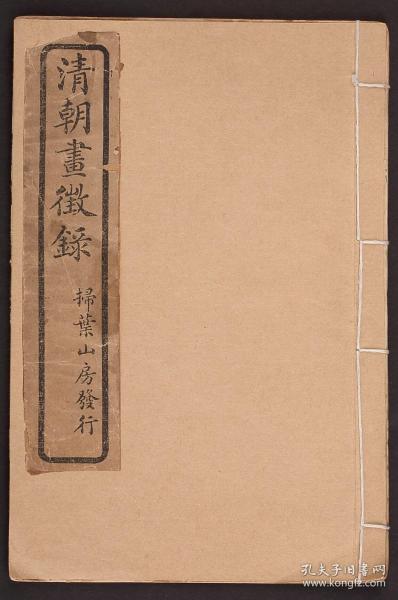 清朝畫徵錄
掃葉山房發行
孔夫子旧书网
www.kongfz.com